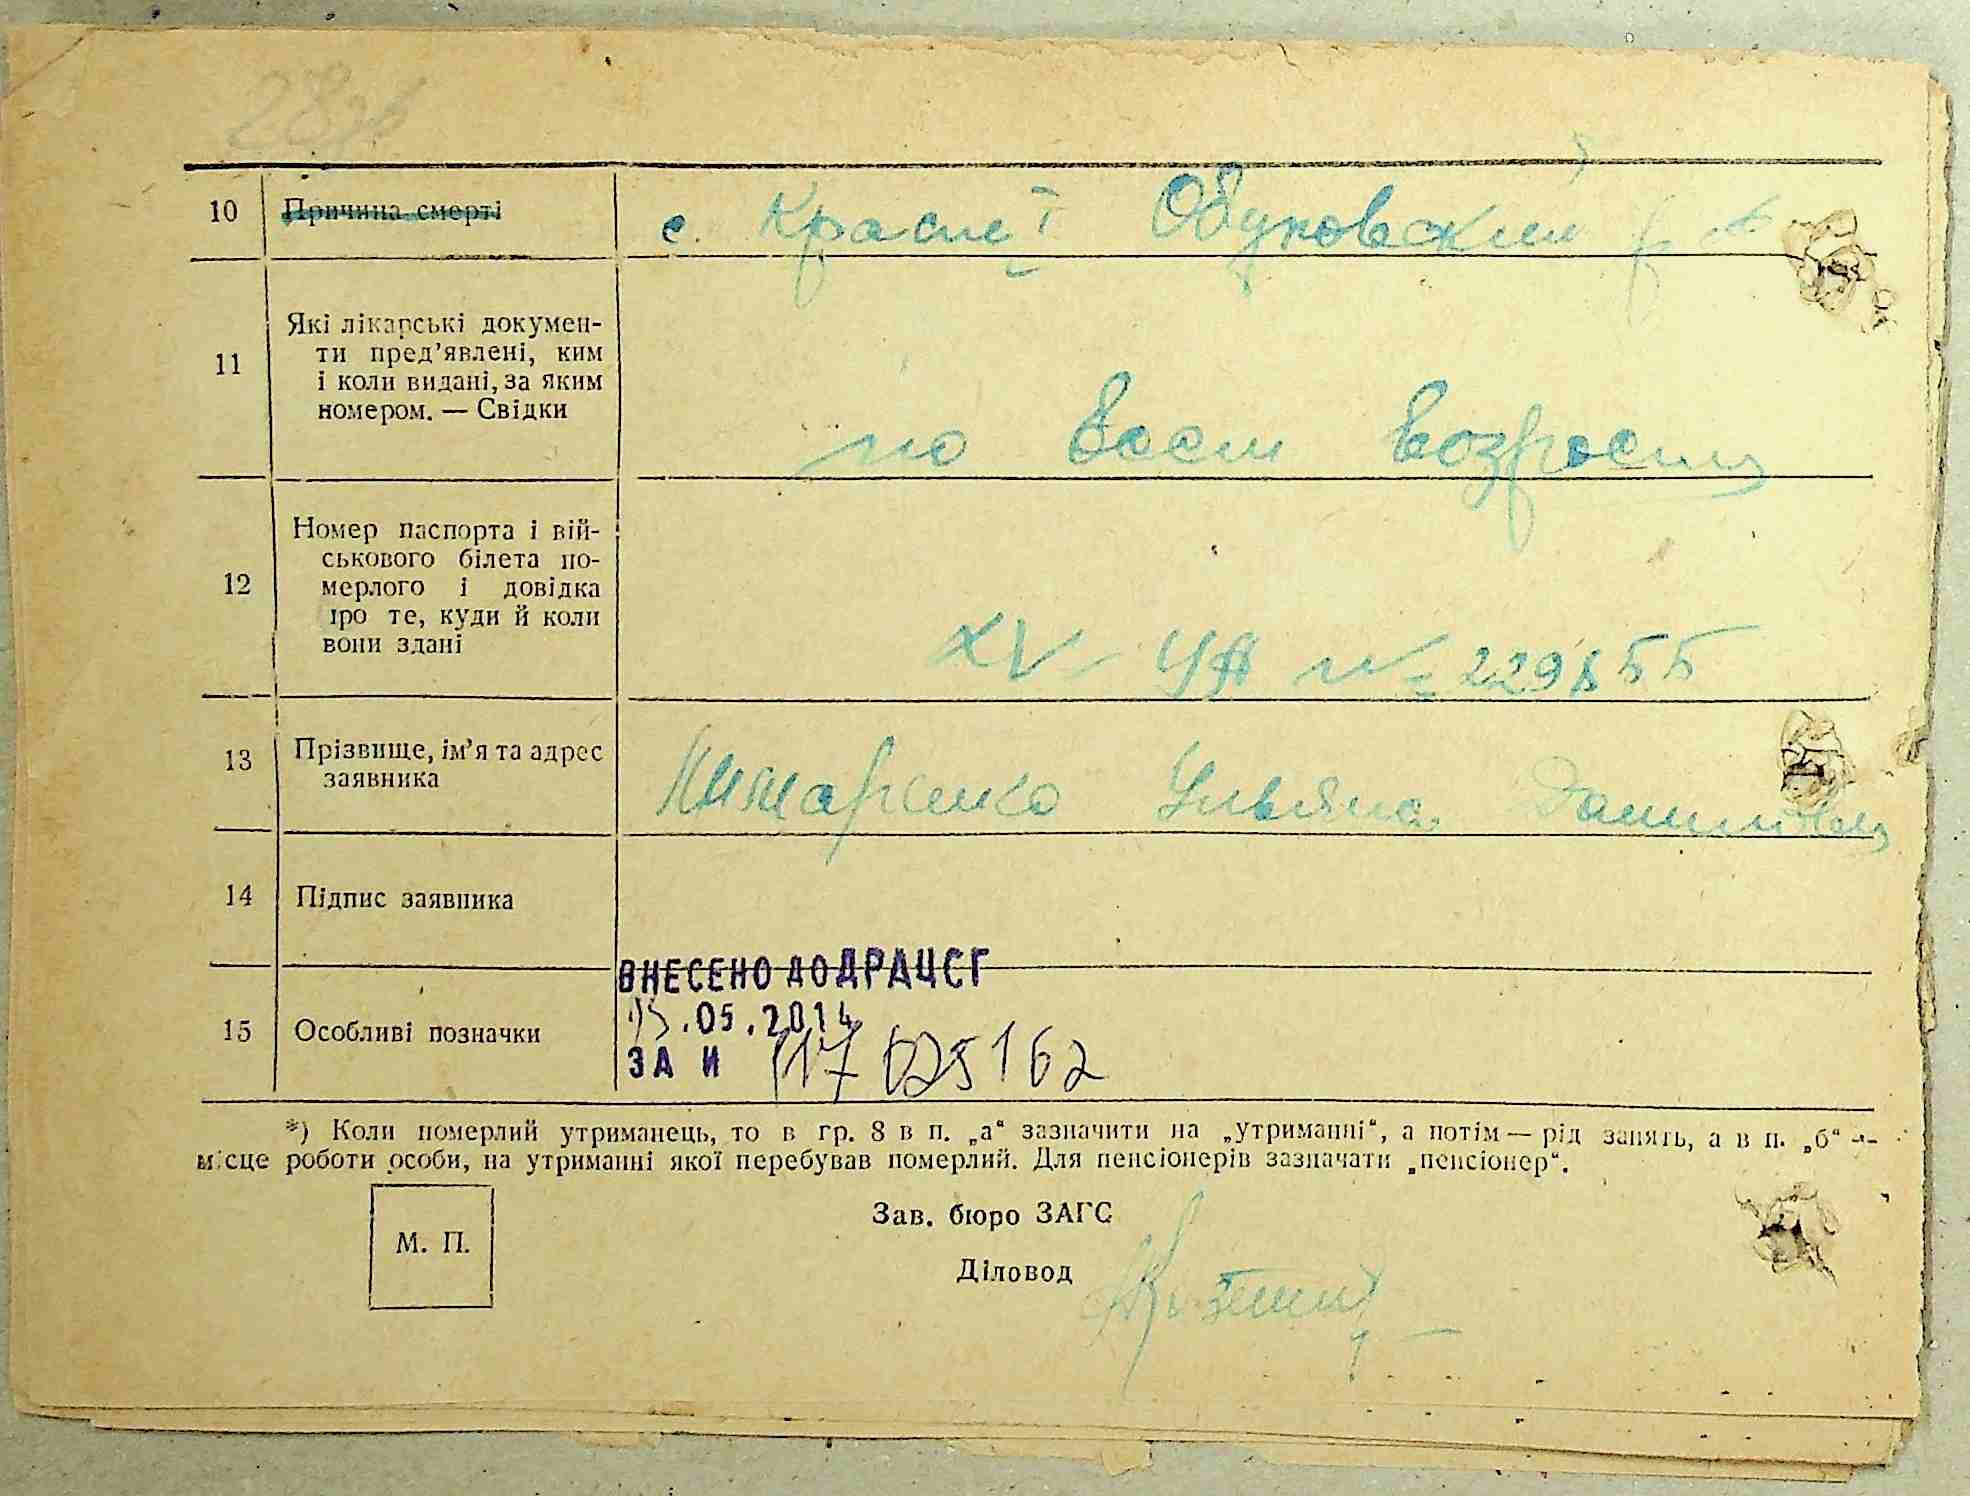 28
10 Причина смерті с. Красне I Обуховский р-н
11 Які лікарські докумен-
ти пред'явлені, ким
і коли видані, за яким
номером. — Свідки
по возрасту
12 Номер паспорта і вій-
ськового білета по-
мерлого і довідка
про те, куди й коли
вони здані
XV-УА №
13 Прізвище, ім'я та адрес
заявника
Ульяна
14 Підпис заявника
ВНЕСЕНО ДО ДРАЦСГ
15 Особливі позначки
.05.2014
ЗА И
*) Коли померлий утриманець, то в гр. 8 в п. „а“ зазначити на „утриманні“, а потім — рід занять, а в п. „б“ —
місце роботи особи, на утриманні якої перебував померлий. Для пенсіонерів зазначати „пенсіонер“.
Зав. бюро ЗАГС
М. П.
Діловод